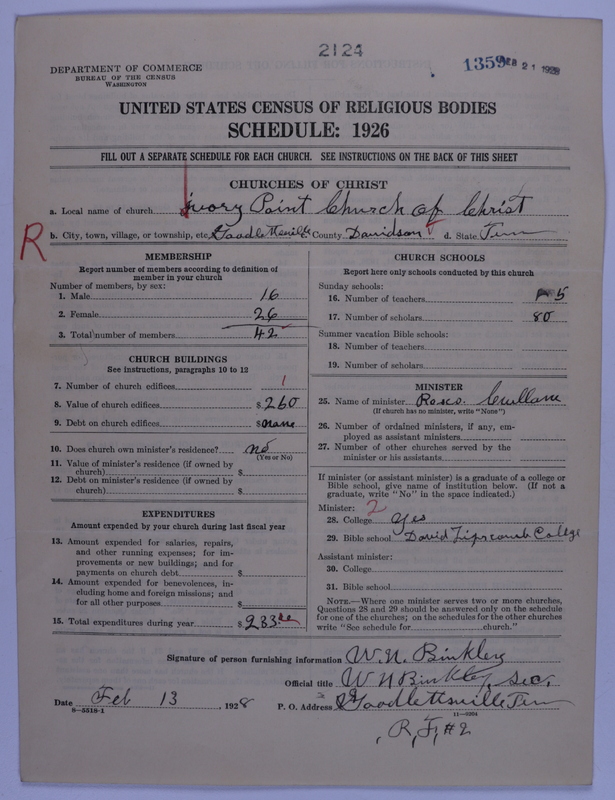 2124
DEPARTMENT OF COMMERCE
BUREAU OF THE CENSUS
WASHINGTON
1359
21 1928
UNITED STATES CENSUS OF RELIGIOUS BODIES
SCHEDULE: 1926
FILL OUT A SEPARATE SCHEDULE FOR EACH CHURCH. SEE INSTRUCTIONS ON THE BACK OF THIS SHEET
CHURCHES OF CHRIST
a. Local name of church Ivory Point Church of Christ
R
b. City, town, village, or township, etc. Goodlettsville c. County Davidson d. State Tenn
MEMBERSHIP
Report number of members according to definition of
member in your church
Number of members, by sex:
1. Male 16
2. Female 26
3. Total number of members 42
CHURCH BUILDINGS
See instructions, paragraphs 10 to 12
7. Number of church edifices 1
8. Value of church edifices $ 260
9. Debt on church edifices $ none
10. Does church own minister's residence? no
(Yes or No)
11. Value of minister's residence (if owned by
church) $
12. Debt on minister's residence (if owned by
church) $
EXPENDITURES
Amount expended by your church during last fiscal year
13. Amount expended for salaries, repairs,
and other running expenses; for im-
provements or new buildings; and for
payments on church debt $
14. Amount expended for benevolences, in-
cluding home and foreign missions; and
for all other purposes $
15. Total expenditures during year $ 233
CHURCH SCHOOLS
Report here only schools conducted by this church
Sunday schools:
16. Number of teachers 5
17. Number of scholars 80
Summer vacation Bible schools:
18. Number of teachers
19. Number of scholars
MINISTER
25. Name of minister Rosco.
(If church has no minister, write "None")
26. Number of ordained ministers, if any, em-
ployed as assistant ministers
27. Number of other churches served by the
minister or his assistants
If minister (or assistant minister) is a graduate of a college or
Bible school, give name of institution below. (If not a
graduate, write "No" in the space indicated.)
Minister: 2
28. College Yes
29. Bible school David Lipscomb College
Assistant minister:
30. College
31. Bible school
NOTE.—Where one minister serves two or more churches,
Questions 28 and 29 should be answered only on the schedule
for one of the churches; on the schedules for the other churches
write "See schedule for church."
Signature of person furnishing information W. N. Binkley
Official title W N Binkley, Sec.
Date Feb 13, 1928 P. O. Address Goodlettsville Tenn
8—5518-1
11—5204
R, F, #2